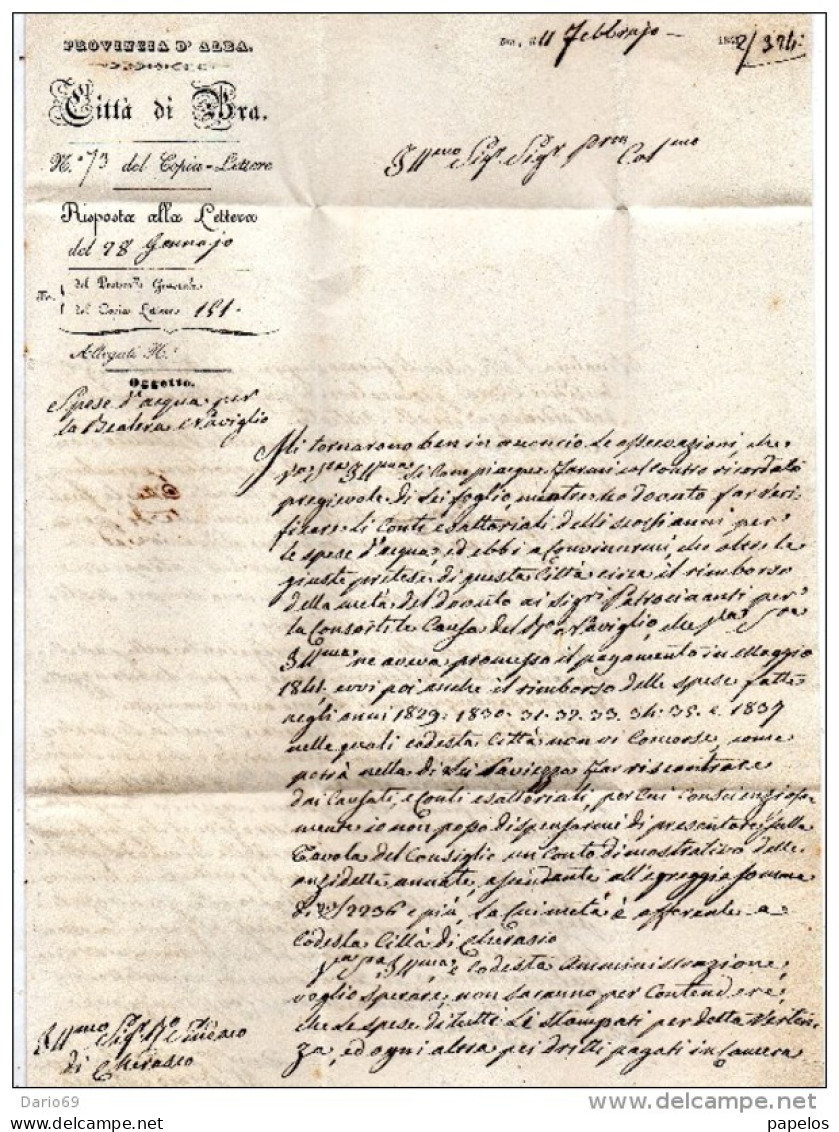 PROVINZIA D' ALBA.
Bra, a 11 Febbrajo 1842/324.
Città di Bra.
N.° 73 del Copia-Lettere
Ill.mo Sig.r Sig.r Pron Col.mo
Risposta alla Lettera
del 28 Gennajo
N.
del Protoc.llo Generale
del Copia Lettere 151.
Allegati N.°
Oggetto.
Spese d'acqua per
la Bealera e Naviglio
Mi tornarono ben in acconcio le osservazioni, che
V.ra Sig.ria Ill.ma si compiacque farmi col contro ricordato
pregievole di Lei foglio, mentre ho dovuto far veri-
ficare li Conti esattoriali delli scorsi anni, per
le spese d'acqua, ed ebbi a Convincermi, che oltre la
giusta pretesa di questa Città circa il rimborso
della metà del dovuto ai sig.ri Patrocinanti per
la Consortile Causa del Naviglio, che
Ill.ma ne aveva promesso il pagamento in Maggio
1841, evvi poi anche il rimborso delle spese fatte
negli anni 1829. 1830. 31. 32. 33. 34. 35. e 1837
nelle quali codesta Città non vi Concorse, come
potrà nella di Lei Saviezza far riscontrare
dai Causati, e Conti esattoriali, per cui conscienziosa-
mente io non posso dispensarmi di presentare sulla
Tavola del Consiglio un Conto dimostrativo delle
anzidette annate, ascendante all'egreggia somma
di 2236 e più, la cui metà è afferente a
Codesta Città di Cherasco
V.ra Sig.ria Ill.ma, e Codesta Amministrazione,
voglio sperare, non saranno per Contendere,
che le spese di tutti li stampati per detta Verten-
za, ed ogni altra pei dritti pagati in Camera
Ill.mo Sig.r Sindaco
di Cherasco
Dario69
delcampe.net
papelos